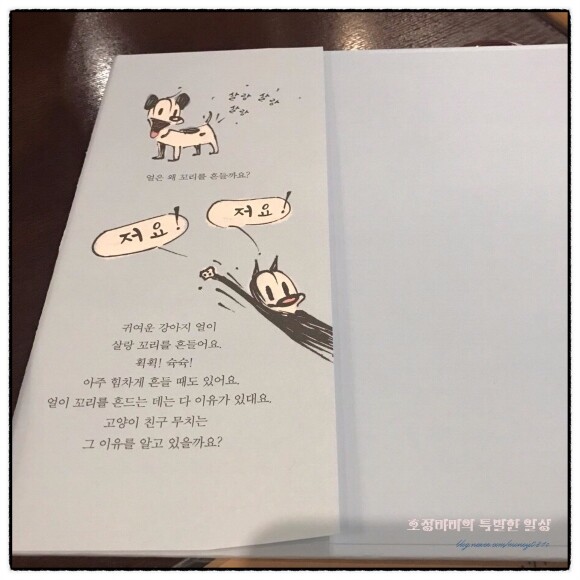 살랑 살랑
살랑
얼은 왜 꼬리를 흔들까요?
저요!
저요!
귀여운 강아지 얼이
살랑 꼬리를 흔들어요.
획획! 슉슉!
아주 힘차게 흔들 때도 있어요.
얼이 꼬리를 흔드는 데는 다 이유가 있대요.
고양이 친구 무치는
그 이유를 알고 있을까요?
호정마미의 특별한 일상